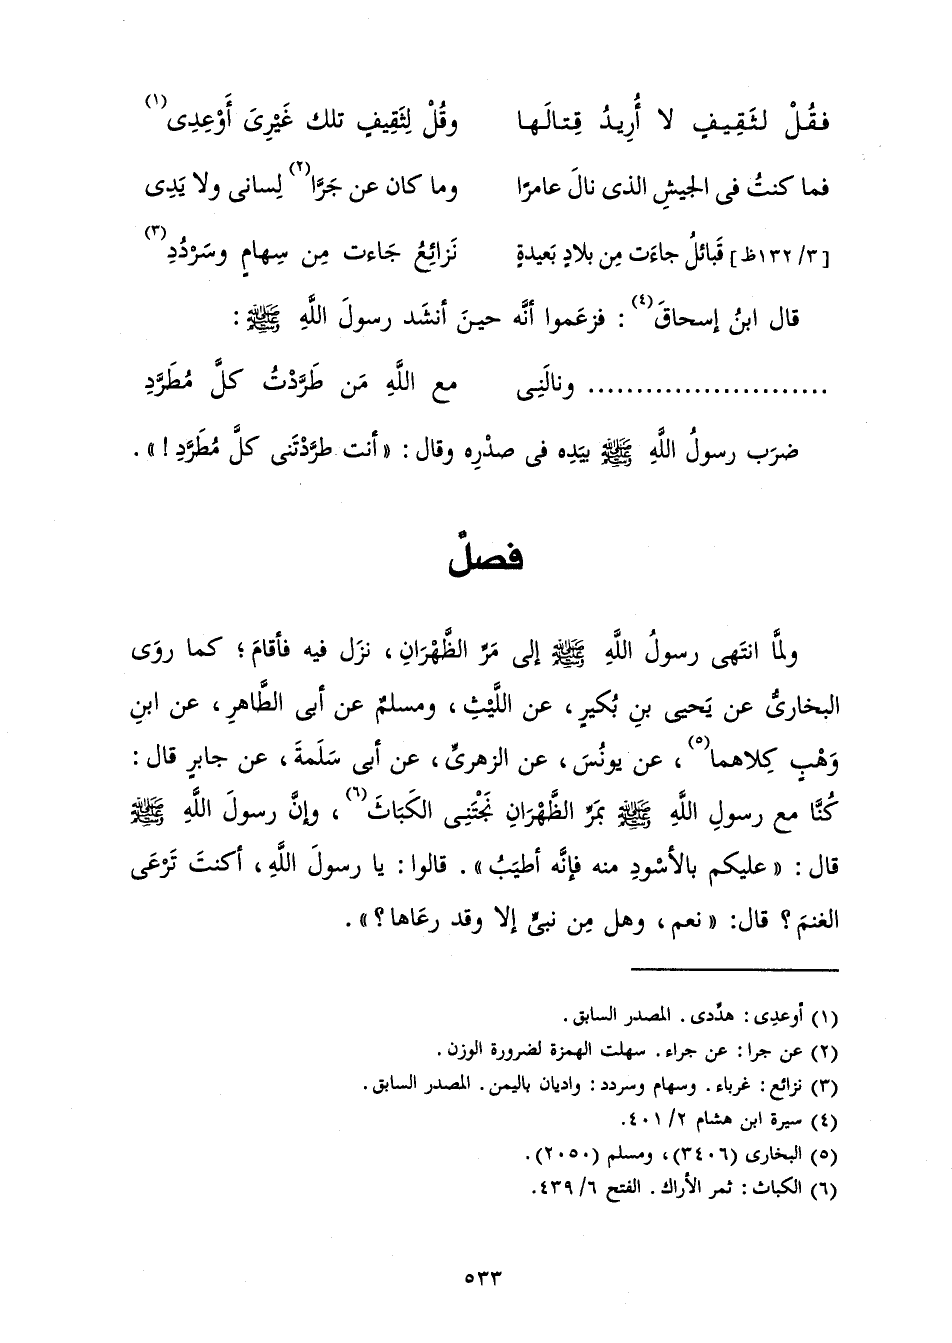 فقُلْ لثَقِيفٍ لا أُرِيدُ قِتالَها وقُلْ لِثَقِيفٍ تلك غَيْرِىَ أَوْعِدِى(١)
فما كنتُ فى الجيشِ الذى نالَ عامرًا وما كان عن جَرَّا(٢) لِسانى ولا يَدِى
[٣/ ١٣٢ظ] قَبائلُ جاءَت مِن بلادٍ بَعيدةٍ نَزائِعُ جَاءت مِن سِهامٍ وسَرْدُدِ(٣)
قال ابنُ إسحاقَ(٤) : فزعَموا أنَّه حينَ أنشَد رسولَ اللَّهِ ﷺ :
........................ ونالَنِى مع اللَّهِ مَن طَرَّدْتُ كلَّ مُطَرَّدِ
ضرَب رسولُ اللَّهِ ﷺ بيَدِه فى صدْرِه وقال : « أنت طرَّدْتَنى كلَّ مُطَرَّدِ ! » .
فصلٌ
ولمَّا انتَهى رسولُ اللَّهِ ﷺ إلى مَرِّ الظَّهْرَانِ ، نزَل فيه فأقامَ ؛ كما روَى
البخارىُّ عن يَحيى بنِ بُكيرٍ ، عن اللَّيْثِ ، ومسلمٌ عن أبى الطَّاهرِ ، عن ابنِ
وَهْبٍ كِلاهما(٥) ، عن يونُسَ ، عن الزهرىِّ ، عن أبى سَلَمةَ ، عن جابرٍ قال :
كُنَّا مع رسولِ اللَّهِ ﷺ بمَرِّ الظَّهْرَانِ نَجْتَنِى الكَبَاثَ(٦) ، وإنَّ رسولَ اللَّهِ ﷺ
قال : « عليكم بالأسْودِ منه فإنَّه أطيَبُ » . قالوا : يا رسولَ اللَّهِ ، أكنتَ تَرْعَى
الغنمَ ؟ قال: « نعم ، وهل مِن نبىٍّ إلا وقد رعَاها ؟ » .
(١) أوعدى : هدِّدى . المصدر السابق .
(٢) عن جرا : عن جراء . سهلت الهمزة لضرورة الوزن .
(٣) نزائع : غرباء . وسهام وسردد : واديان باليمن . المصدر السابق .
(٤) سيرة ابن هشام ٢/ ٤٠١.
(٥) البخارى (٣٤٠٦) ، ومسلم (٢٠٥٠) .
(٦) الكباث : ثمر الأراك . الفتح ٦/ ٤٣٩.
٥٣٣